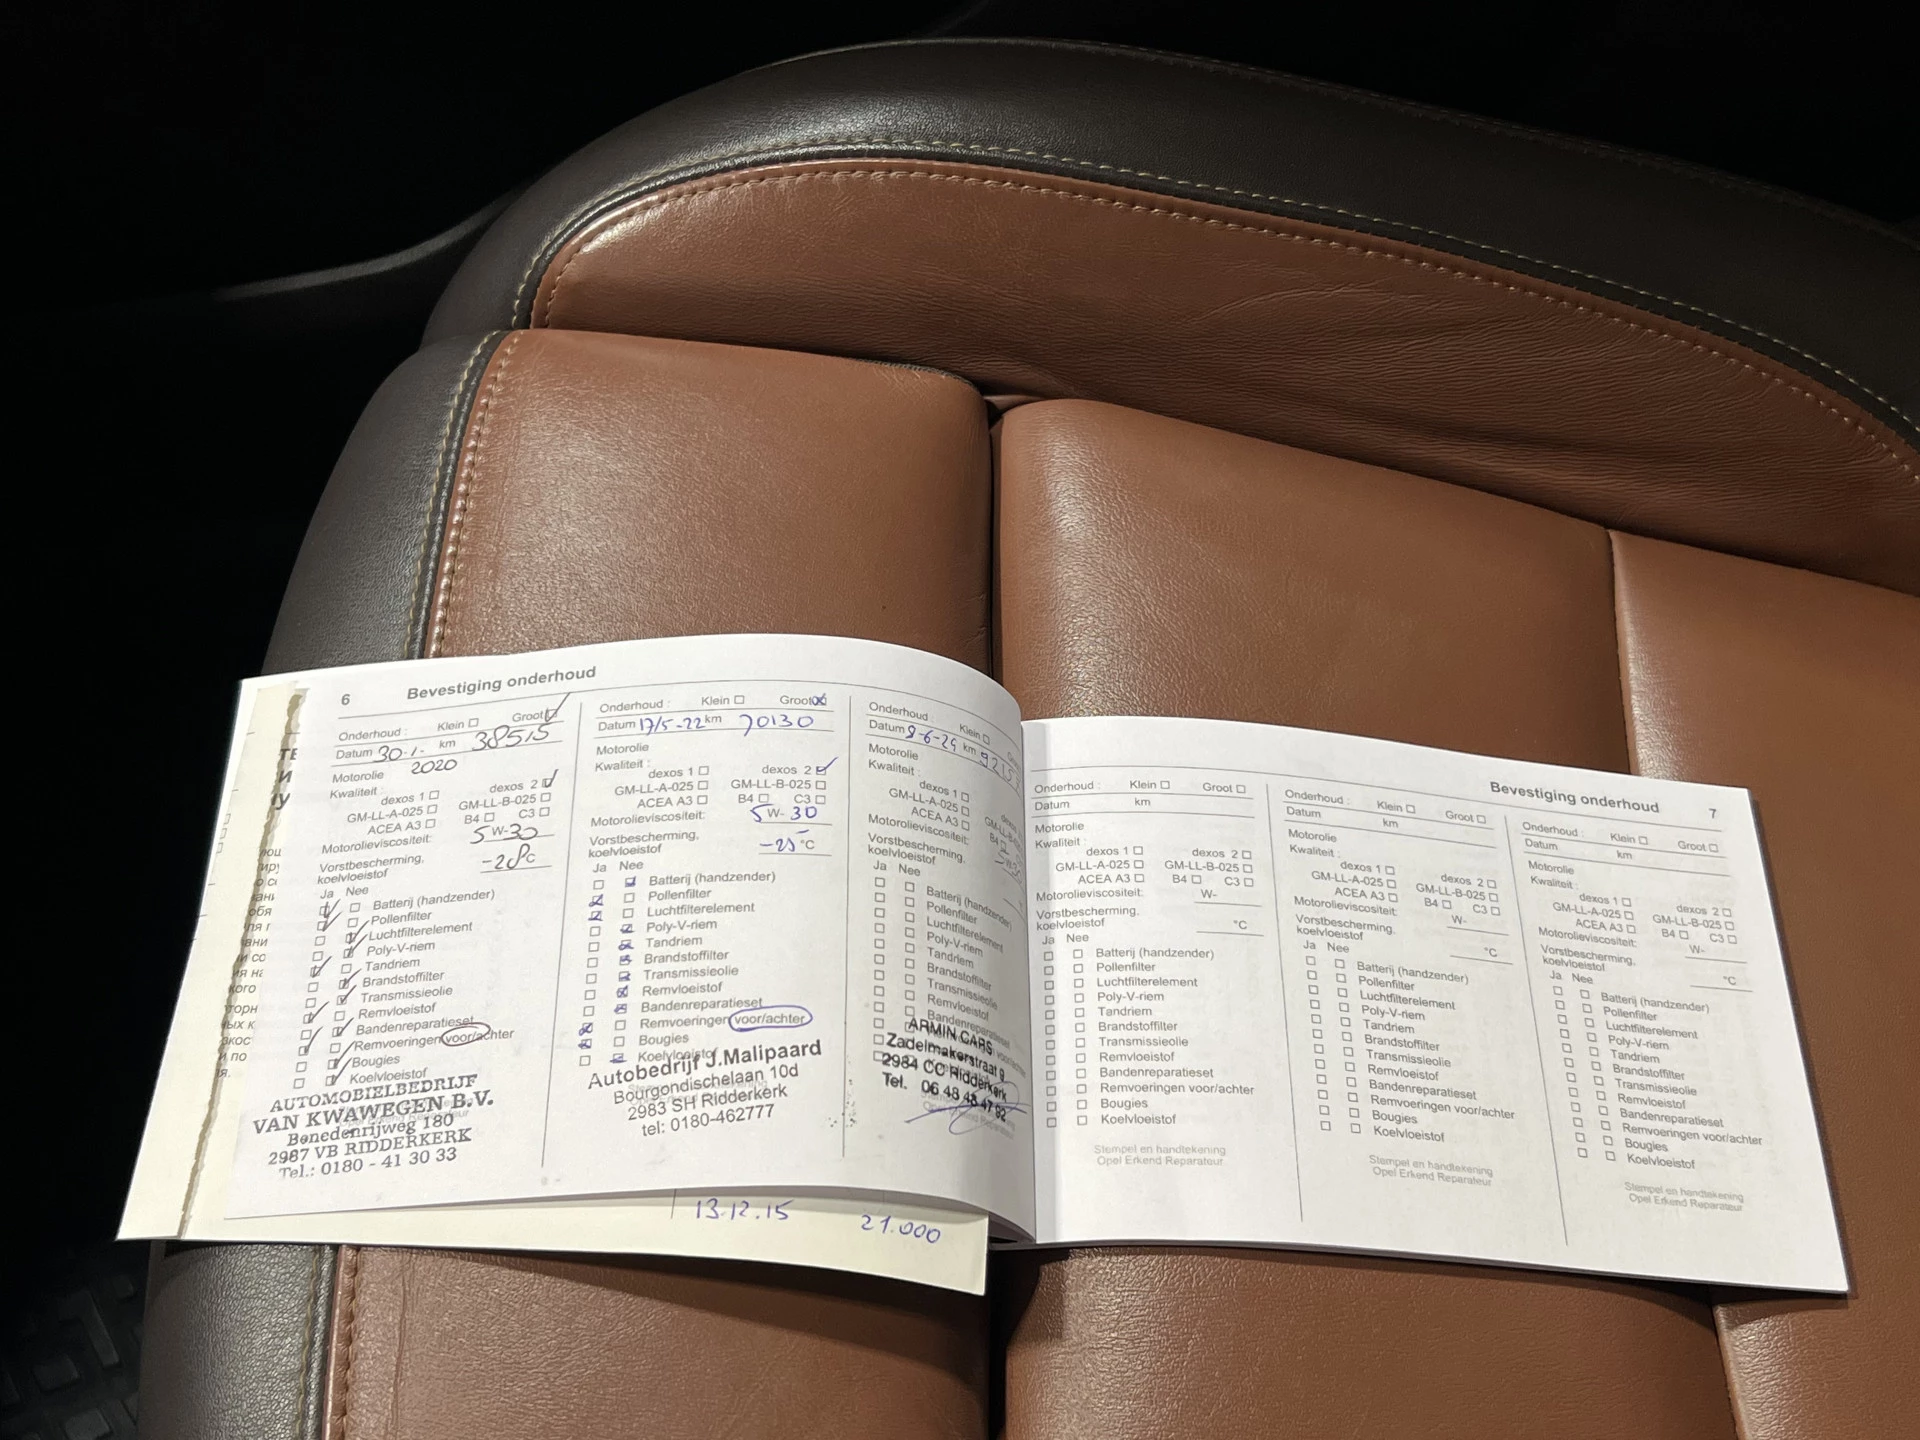 6 Bevestiging onderhoud
Onderhoud : Klein Groot
Datum 30-1- km 38515
2020
Motorolie
Kwaliteit :
dexos 1 dexos 2
GM-LL-A-025 GM-LL-B-025
ACEA A3 B4 C3
Motorolieviscositeit: 5 W-30
Vorstbescherming,
koelvloeistof -28°C
Ja Nee
Batterij (handzender)
Pollenfilter
Luchtfilterelement
Poly-V-riem
Tandriem
Brandstoffilter
Transmissieolie
Remvloeistof
Bandenreparatieset
Remvoeringen voor/achter
Bougies
Koelvloeistof
AUTOMOBIELBEDRIJF
VAN KWAWEGEN B.V.
Benedenrijweg 180
2987 VB RIDDERKERK
Tel.: 0180 - 41 30 33
Onderhoud : Klein Groot
Datum 17/5-22 km 70130
Motorolie
Kwaliteit :
dexos 1 dexos 2
GM-LL-A-025 GM-LL-B-025
ACEA A3 B4 C3
Motorolieviscositeit: 5 W- 30
Vorstbescherming,
koelvloeistof -25 °C
Ja Nee
Batterij (handzender)
Pollenfilter
Luchtfilterelement
Poly-V-riem
Tandriem
Brandstoffilter
Transmissieolie
Remvloeistof
Bandenreparatieset
Remvoeringen voor/achter
Bougies
Koelvloeistof
Autobedrijf J.Malipaard
Bourgondischelaan 10d
2983 SH Ridderkerk
tel: 0180-462777
Onderhoud : Klein
Datum km
Motorolie
Kwaliteit :
dexos 1
GM-LL-A-025
ACEA A3
Motorolieviscositeit:
Vorstbescherming,
koelvloeistof
Ja Nee
Batterij (handzender)
Pollenfilter
Luchtfilterelement
Poly-V-riem
Tandriem
Brandstoffilter
Transmissieolie
Remvloeistof
Bandenreparatieset
ARMIN CARS
Zadelmakerstraat 9
2984 CC Ridderkerk
Tel. 06 48 48 47 92
13.12.15 21.000
Bevestiging onderhoud 7
Onderhoud : Klein Groot
Datum km
Motorolie
Kwaliteit :
dexos 1 dexos 2
GM-LL-A-025 GM-LL-B-025
ACEA A3 B4 C3
Motorolieviscositeit: W-
Vorstbescherming,
koelvloeistof °C
Ja Nee
Batterij (handzender)
Pollenfilter
Luchtfilterelement
Poly-V-riem
Tandriem
Brandstoffilter
Transmissieolie
Remvloeistof
Bandenreparatieset
Remvoeringen voor/achter
Bougies
Koelvloeistof
Stempel en handtekening
Opel Erkend Reparateur
Onderhoud : Klein Groot
Datum km
Motorolie
Kwaliteit :
dexos 1 dexos 2
GM-LL-A-025 GM-LL-B-025
ACEA A3 B4 C3
Motorolieviscositeit: W-
Vorstbescherming,
koelvloeistof °C
Ja Nee
Batterij (handzender)
Pollenfilter
Luchtfilterelement
Poly-V-riem
Tandriem
Brandstoffilter
Transmissieolie
Remvloeistof
Bandenreparatieset
Remvoeringen voor/achter
Bougies
Koelvloeistof
Stempel en handtekening
Opel Erkend Reparateur
Onderhoud : Klein Groot
Datum km
Motorolie
Kwaliteit :
dexos 1 dexos 2
GM-LL-A-025 GM-LL-B-025
ACEA A3 B4 C3
Motorolieviscositeit: W-
Vorstbescherming,
koelvloeistof °C
Ja Nee
Batterij (handzender)
Pollenfilter
Luchtfilterelement
Poly-V-riem
Tandriem
Brandstoffilter
Transmissieolie
Remvloeistof
Bandenreparatieset
Remvoeringen voor/achter
Bougies
Koelvloeistof
Stempel en handtekening
Opel Erkend Reparateur